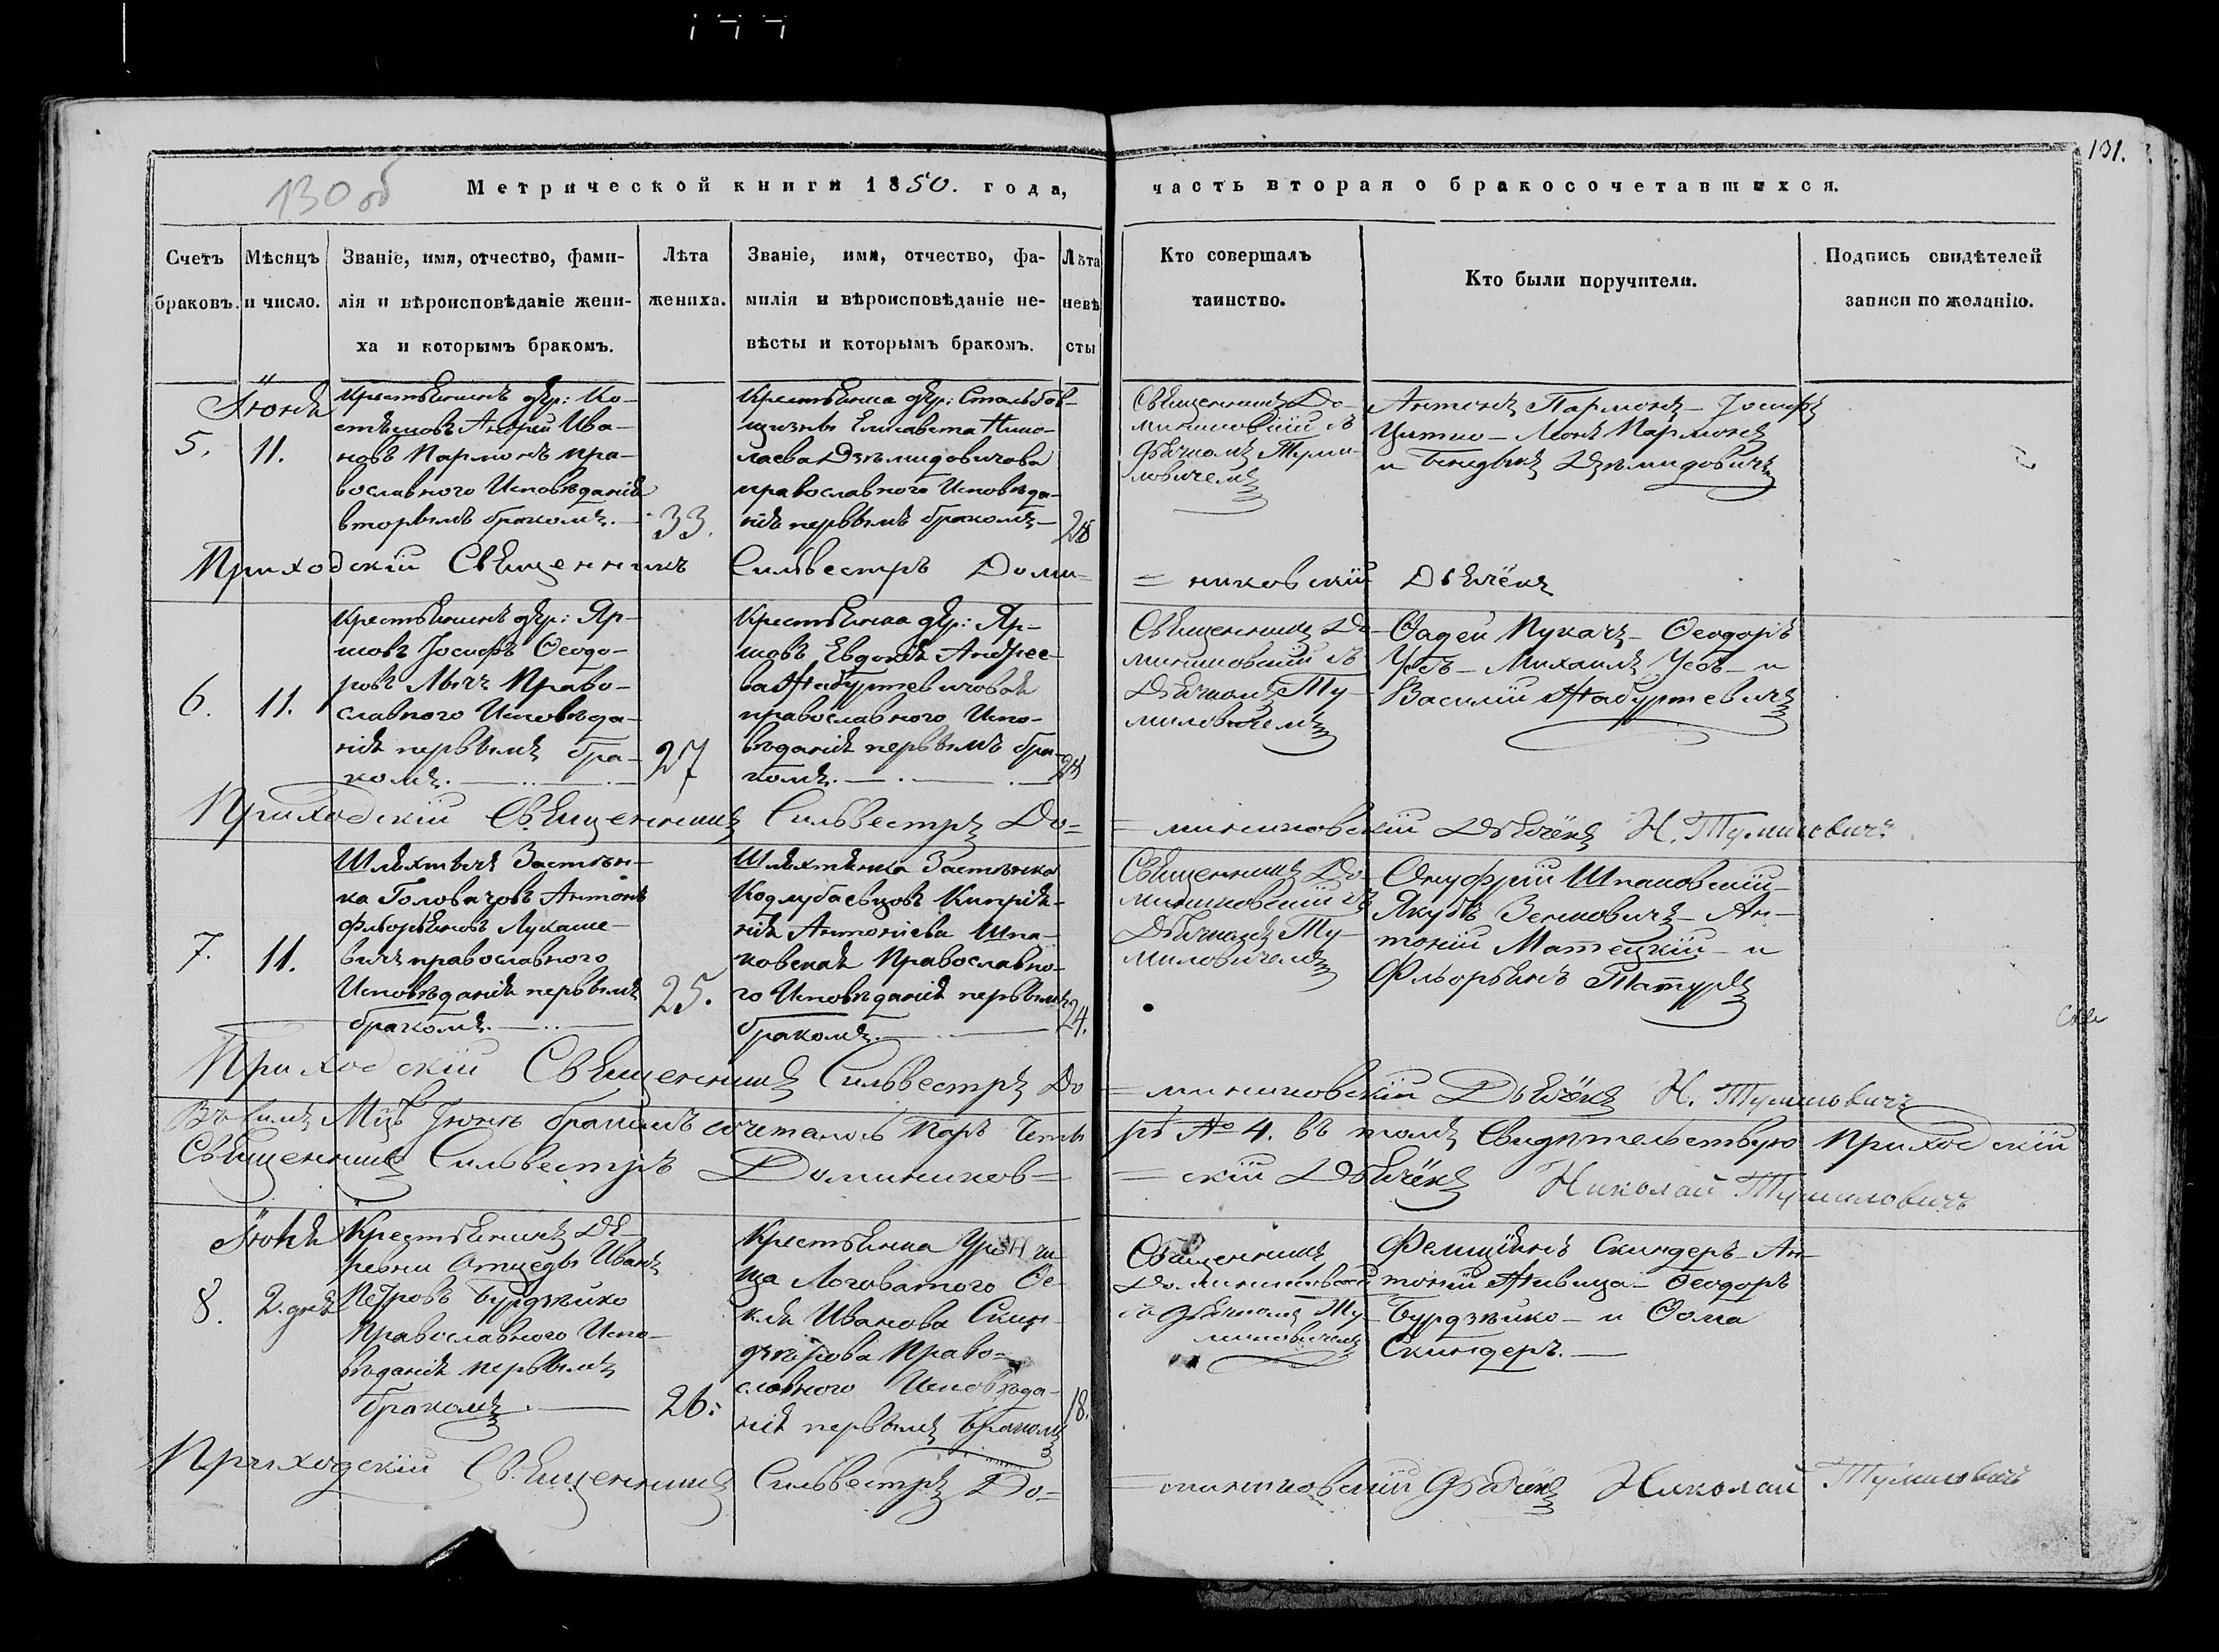 130 об
Метрической книги 1850. года,
часть вторая о бракосочетавшихся.
131.
Счетъ браковъ.
Мѣсяцъ и число.
Званіе, имя, отчество, фами-
лія и вѣроисповѣданіе жени-
ха и которымъ бракомъ.
Лѣта
жениха.
Званіе, имя, отчество, фа-
милія и вѣроисповѣданіе не-
вѣсты и которымъ бракомъ.
Лѣта
невѣ
сты
Кто совершалъ
таинство.
Кто были поручители.
Подпись свидѣтелей
записи по желанію.
5.
11.
крестьянинъ дер: Ко-
Андрей Ива-
новъ Пармонъ пра-
вославного Исповѣданія
вторымъ бракомъ.
33.
крестьянка дер:
Елисавета Нико-
лаева Дзѣмидовичова
православного Исповѣда-
нія первымъ бракомъ
Священникъ До-
миниковскій съ
дьячкомъ Туми-
ловичемъ
Антонъ Пармонъ – Іосифъ
Цитко – Леонъ Пармонъ
и Бенедыктъ Дзѣмидовичъ
Приходскій Священникъ Сильвестръ Доми=
= никовскій Дьячёкъ
6.
11.
крестьянинъ дер: Яр-
шовъ Іосифъ Ѳеодо-
ровъ Лычъ Право-
славного Исповѣда-
нія первымъ бра-
комъ.
27
крестьянка дер: Яр-
шовъ Евдокія Андрее-
ва
православного Испо-
вѣданія первымъ бра-
комъ.
Священникъ До-
миниковскій съ
Дьячкомъ Ту-
миловичемъ
Ѳадей Пукачъ – Ѳеодоръ
Усъ – Михаилъ Усъ – и
Василій
Приходскій Священникъ Сильвестръ До=
= миниковскій Дьячёкъ Н. Тумиловичъ
7.
11.
Шляхтичъ Застѣн-
ка Головачовъ Антонъ
Флоріяновъ Лукаше-
вичъ православного
Исповѣданія первымъ
бракомъ.
25.
Шляхтянка Застѣнка
Кодлубаевцовъ Кипрія-
нія Антоніева Шпа-
ковская Православно-
го Исповѣданія первымъ
бракомъ.
24.
Священникъ До-
миниковскій съ
Дьячкомъ Ту-
миловичемъ
Онуфрій Шпаковскій –
Якубъ Зенковичъ – Ан-
тоній Матецкій – и
Флорьянъ Татуръ
Приходскій Священникъ Сильвестръ До
= миниковскій Дьячёкъ Н. Тумиловичъ
бракомъ сочеталось Паръ Четы
ре № 4. въ томъ Свидѣтельствую Приходскій
Священникъ Сильвестръ Домиников=
= скій Дьячёкъ Николай Тумиловичъ
8.
2. дня
Крестьянинъ Де-
ревни Отцеды Иванъ
Петровъ Бурдзѣйко
Православного Испо-
вѣданія первымъ
бракомъ.
26.
Крестьянка
Логоватого Ѳе-
кла Иванова Скин-
Право=
славного Исповѣда-
нія первымъ бракомъ
18.
Священникъ
Доминиковскій
съ дьячкомъ Ту-
миловичемъ
Фелиціянъ Скиндеръ – Ан-
тоній Жывица – Ѳеодоръ
Бурдзѣйко – и Ѳома
Скиндеръ.
Приходскій Священникъ Сильвестръ До=
= миниковскій Дьячёкъ Николай Тумиловичъ